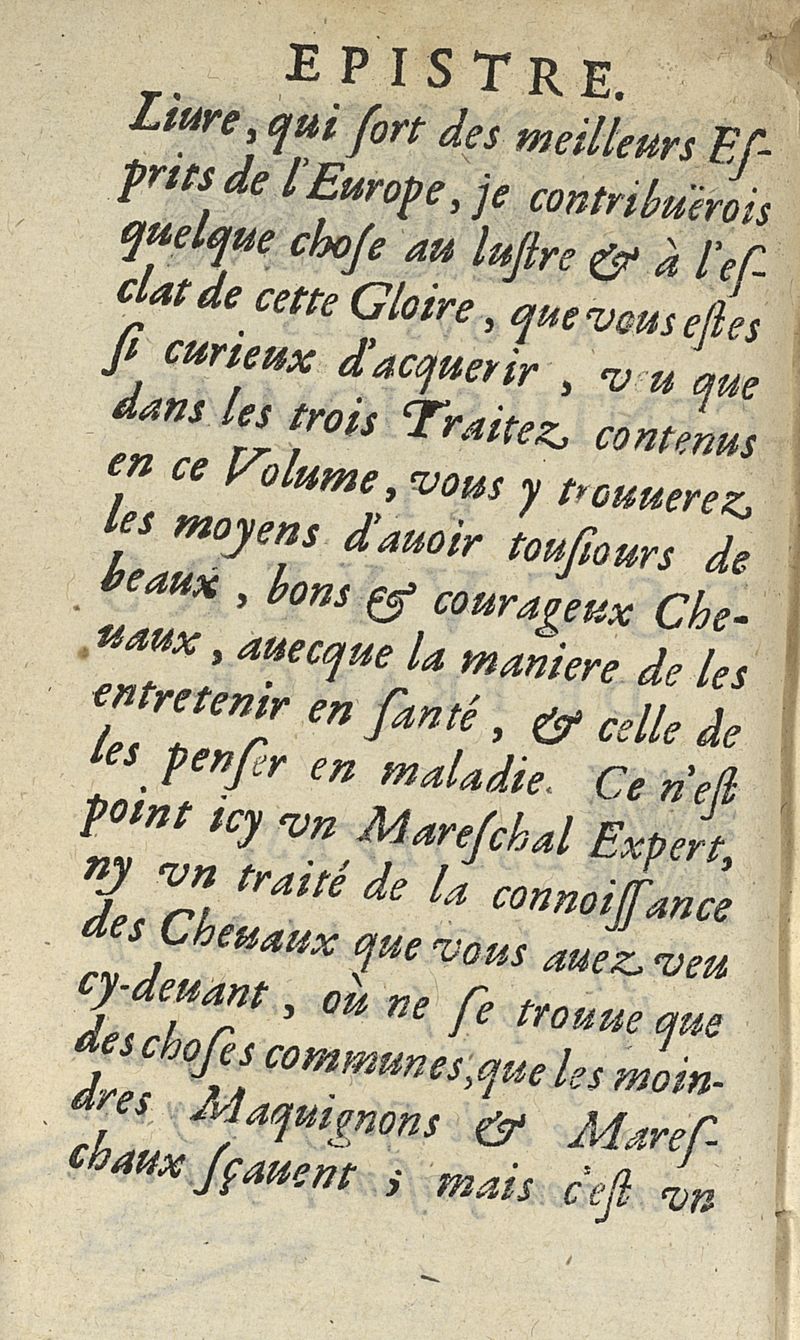 EPISTRE.
Liure, qui ſort des meilleurs Eſ-
prits de l'Europe, je contribuërois
quelque choſe au luſtre & à l'eſ-
clat de cette Gloire, que vous eſtes
ſi curieux d'acquerir, veu que
dans les trois Traitez contenus
en ce Volume, vous y trouuerez
les moyens d'auoir touſiours de
beaux, bons & courageux Che-
uaux, auecque la maniere de les
entretenir en ſanté, & celle de
les penſer en maladie. Ce n'eſt
point icy vn Mareſchal Expert,
ny vn traité de la connoiſſance
des Cheuaux que vous auez veu
cy-deuant, où ne ſe trouue que
des choſes communes, que les moin-
dres Maquignons & Mareſ-
chaux ſçauent ; mais c'eſt vn